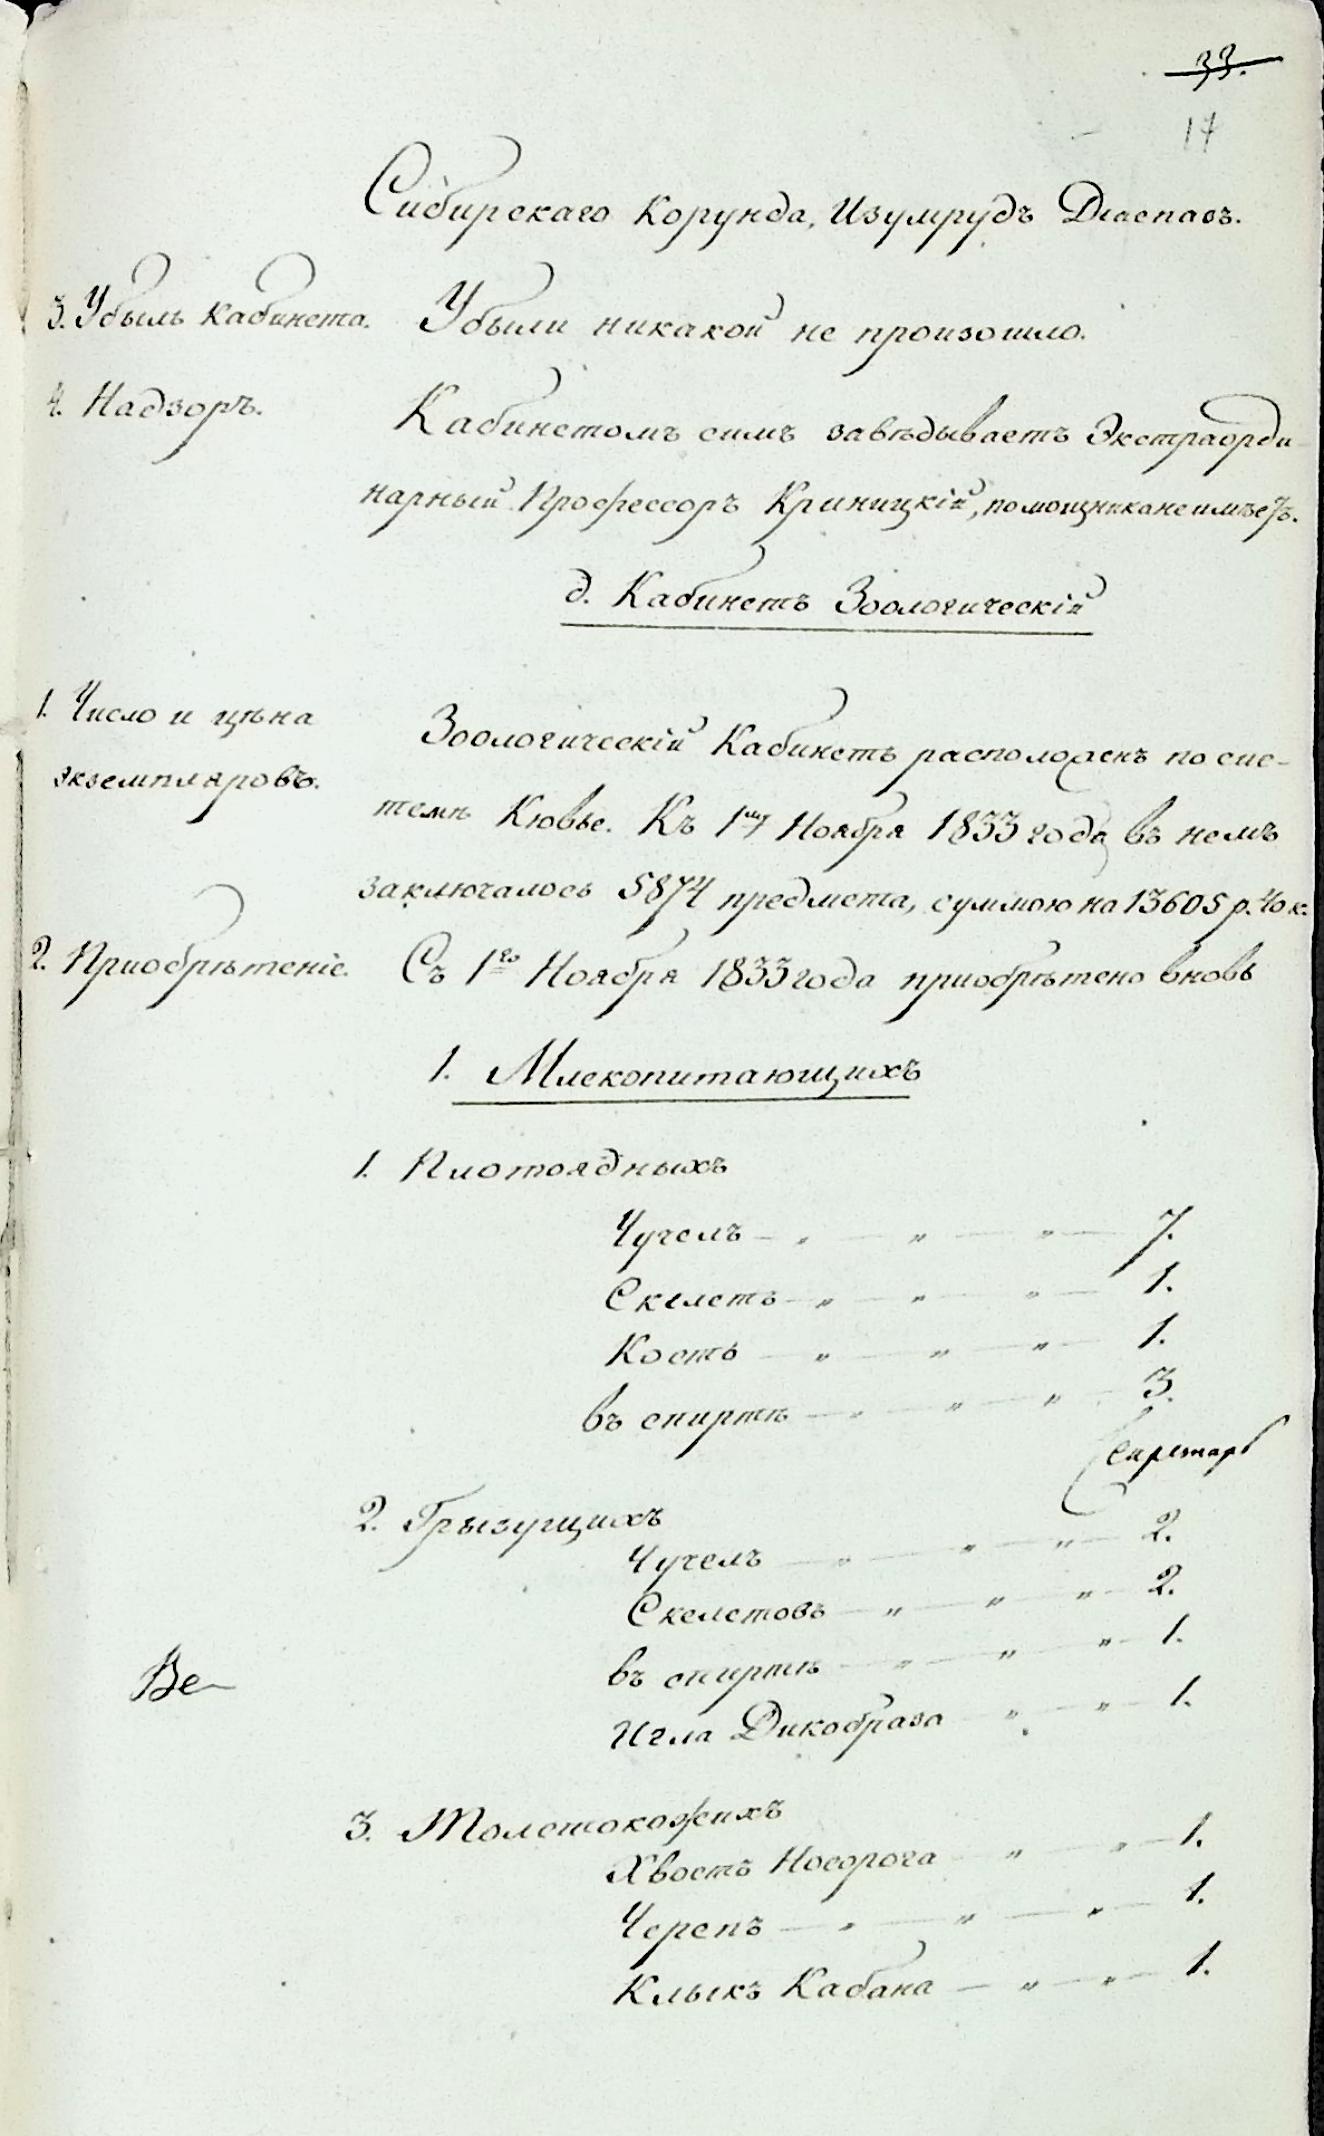 33.
17
Сибирскаго Корунда, Изумрудъ Діаспазъ.
3. Убыль Кабинета. Убыли никакой не произошло.
4. Надзоръ. Кабинетомъ симъ завѣдываетъ Экстраорди-
нарный Профессоръ Криницкій, помощника не имѣетъ.
д. Кабинетъ Зоологическій
1. Число и цѣна
экземпляровъ.
Зоологическій Кабинетъ расположенъ по сис-
темѣ Кювье. Къ 1му Ноября 1833 года въ немъ
заключалось 5874 предмета, суммою на 13605 р. 40 к.
2. Приобрѣтеніе. Съ 1го Ноября 1833 года приобрѣтено вновь
1. Млекопитающихъ
1. Плотоядныхъ
Чучелъ — „ — „ — „ — 7.
Скелетъ — „ — „ — „ — 1.
Кость — „ — „ — „ — 1.
въ спиртѣ — „ — „ — „ — 3.
Секретарь
2. Грызущихъ
Чучелъ — „ — „ — „ — 2.
Скелетовъ — „ — „ — „ — 2.
въ спиртѣ — „ — „ — „ — 1.
Игла Дикобраза — „ — „ — 1.
Ве
3. Толстокожихъ
Хвостъ Носорога — „ — „ — 1.
Черепъ — „ — „ — „ — 1.
Клыкъ Кабана — „ — „ — 1.